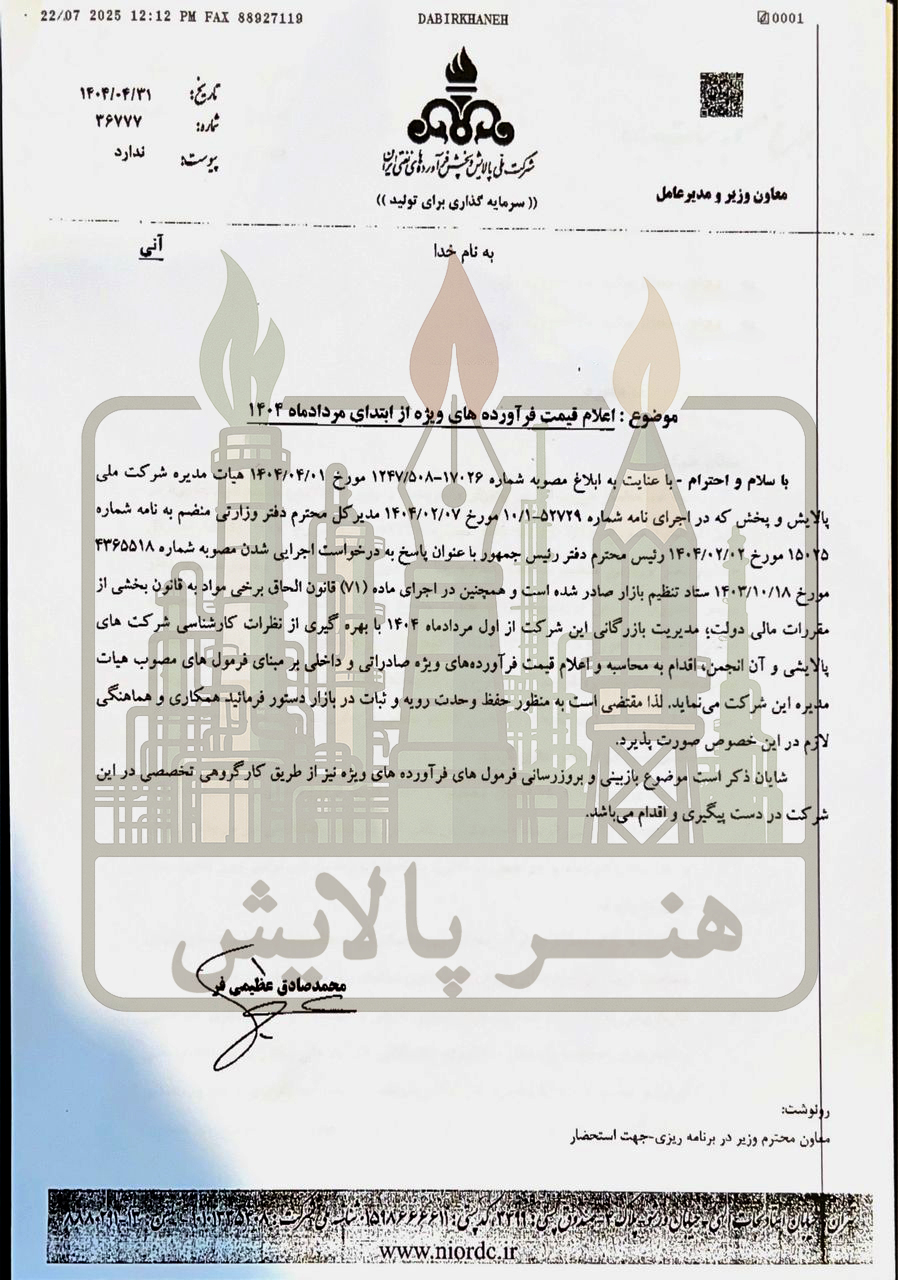 22/07 2025 12:12 PM FAX 88927119 DABIRKHANEH 0001
تاریخ: ۱۴۰۴/۰۴/۳۱
شماره: ۳۶۷۷۷
پیوست: ندارد
شرکت ملی پالایش و پخش فرآورده‌های نفتی ایران
(( سرمایه گذاری برای تولید ))
معاون وزیر و مدیرعامل
آنی
به نام خدا
موضوع : اعلام قیمت فرآورده های ویژه از ابتدای مردادماه ۱۴۰۴
با سلام و احترام - با عنایت به ابلاغ مصوبه شماره ۱۷۰۲۶-۱۲۴۷/۵۰۸ مورخ ۱۴۰۴/۰۴/۰۱ هیات مدیره شرکت ملی
پالایش و پخش که در اجرای نامه شماره ۵۲۷۲۹-۱۰/۱ مورخ ۱۴۰۴/۰۲/۰۷ مدیرکل محترم دفتر وزارتی منضم به نامه شماره
۱۵۰۲۵ مورخ ۱۴۰۴/۰۲/۰۲ رئیس محترم دفتر رئیس جمهور با عنوان پاسخ به درخواست اجرایی شدن مصوبه شماره ۴۳۶۵۵۱۸
مورخ ۱۴۰۳/۱۰/۱۸ ستاد تنظیم بازار صادر شده است و همچنین در اجرای ماده (۷۱) قانون الحاق برخی مواد به قانون بخشی از
مقررات مالی دولت؛ مدیریت بازرگانی این شرکت از اول مردادماه ۱۴۰۴ با بهره گیری از نظرات کارشناسی شرکت های
پالایشی و آن انجمن، اقدام به محاسبه و اعلام قیمت فرآورده‌های ویژه صادراتی و داخلی بر مبنای فرمول های مصوب هیات
مدیره این شرکت می‌نماید. لذا مقتضی است به منظور حفظ وحدت رویه و ثبات در بازار دستور فرمائید همکاری و هماهنگی
لازم در این خصوص صورت پذیرد.
شایان ذکر است موضوع بازبینی و بروزرسانی فرمول های فرآورده های ویژه نیز از طریق کارگروهی تخصصی در این
شرکت در دست پیگیری و اقدام می‌باشد.
هنر پالایش
محمدصادق عظیمی فر
رونوشت:
معاون محترم وزیر در برنامه ریزی-جهت استحضار
www.niordc.ir